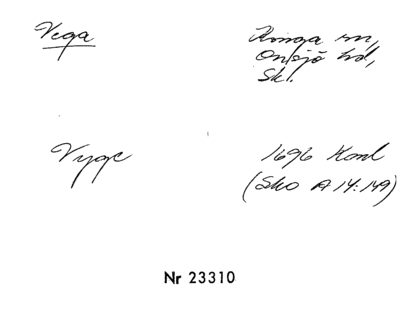 Vega
Konga sn,
Onsjö hd,
Sk.
Vyge
1696 Konl
(Sko A 14:149)
Nr 23310